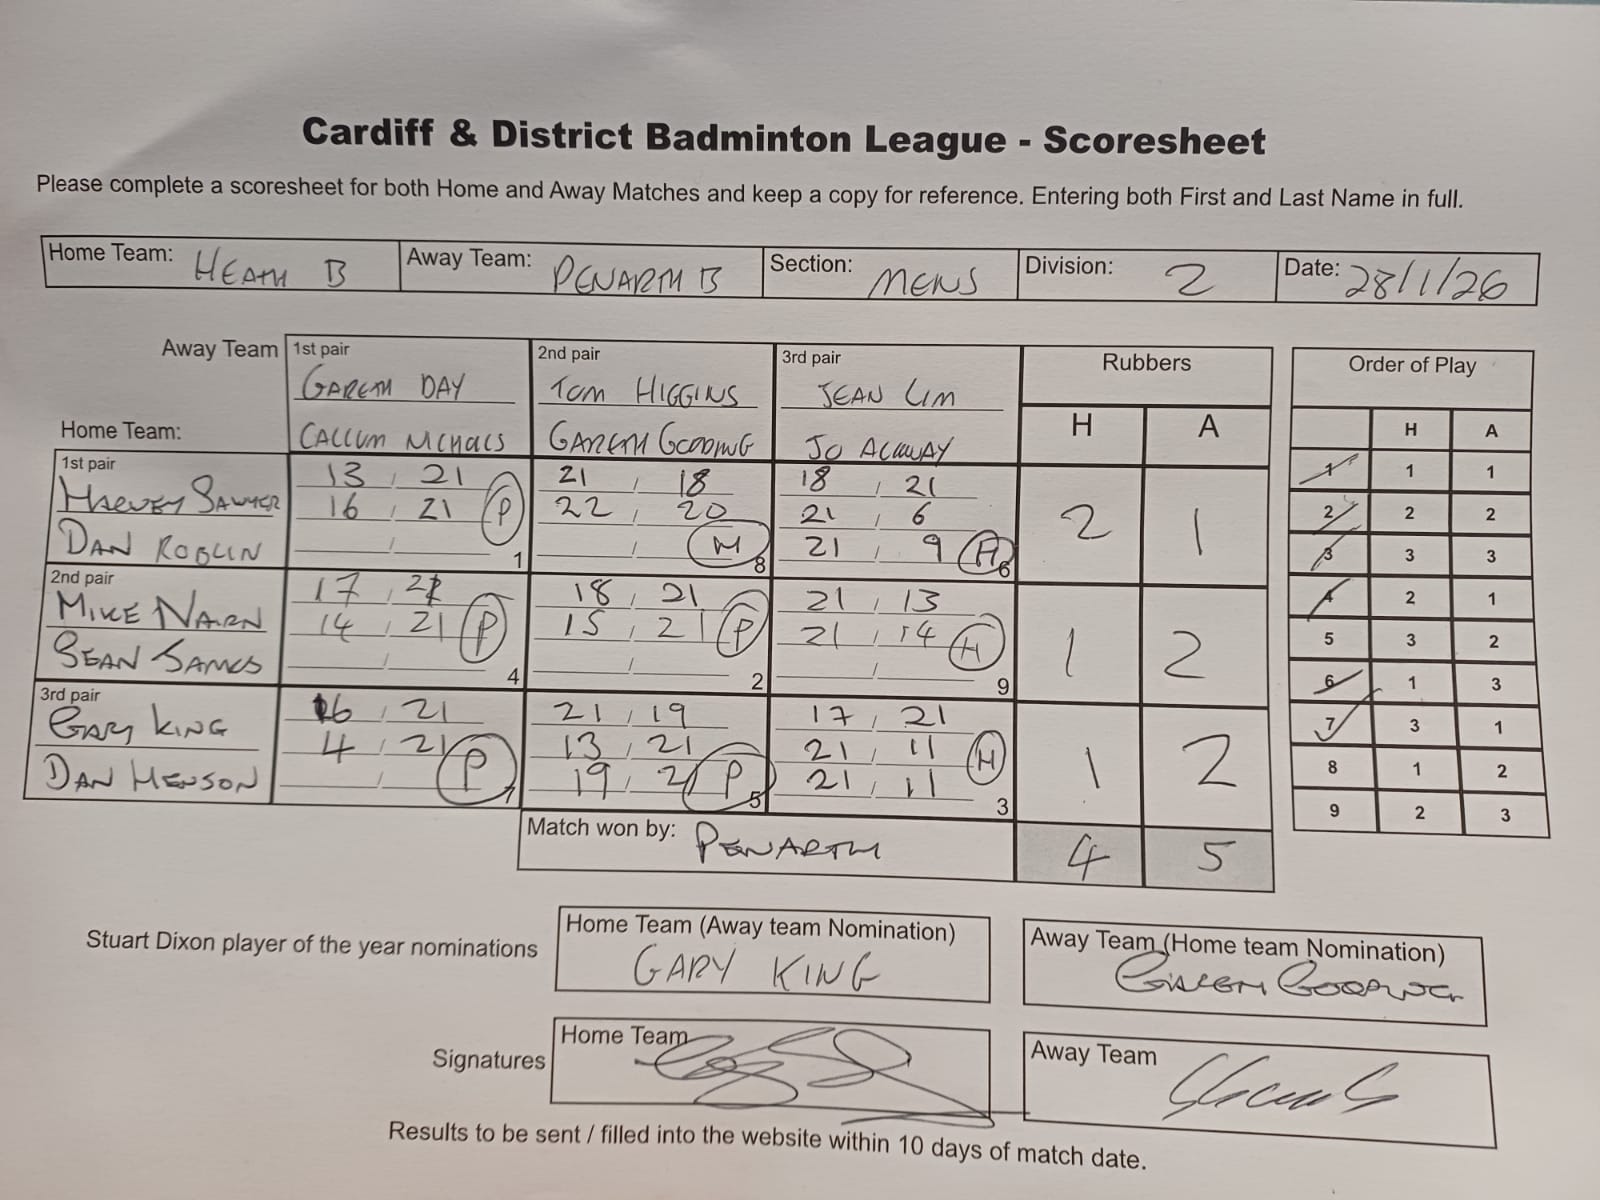 Cardiff & District Badminton League - Scoresheet
Please complete a scoresheet for both Home and Away Matches and keep a copy for reference. Entering both First and Last Name in full.
Home Team: HEATH B Away Team: PENARTH B Section: MENS Division: 2 Date: 28/1/26
Away Team 1st pair 2nd pair 3rd pair Rubbers Order of Play
GARETH DAY TOM HIGGINS JEAN LIM
Home Team: CALLUM NICHOLS GARETH GOODING JO ALLWAY H A H A
1st pair 13 , 21 21 , 18 18 , 21 1 1 1
HARVEY SAWYER 16 , 21 P 22 , 20 21 , 6 2 1 2 2 2
DAN ROBLIN / 1 / H 8 21 , 9 H 6 3 3 3
2nd pair 17 , 21 18 , 21 21 , 13 4 2 1
MIKE NAIRN 14 , 21 P 15 , 21 P 21 , 14 H 1 2 5 3 2
SEAN / 4 / 2 / 9 6 1 3
3rd pair 16 , 21 21 , 19 17 , 21 7 3 1
GARY KING 4 , 21 13 , 21 21 , 11 H 1 2 8 1 2
DAN HENSON / P 7 19 , 21 P 5 21 , 11 3 9 2 3
Match won by: PENARTH 4 5
Stuart Dixon player of the year nominations
Home Team (Away team Nomination)
GARY KING
Away Team (Home team Nomination)
GARETH GOODING
Signatures
Home Team
Away Team
Results to be sent / filled into the website within 10 days of match date.